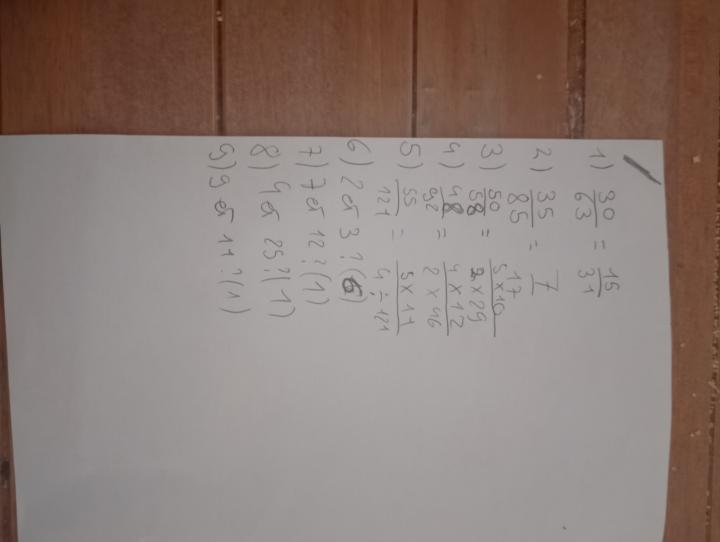 1) 30/63 = 15/31
2) 35/85 = 7/17
3) 50/58 = 5x10/2x29
4) 48/92 = 4x12/2x46
5) 55/121 = 5x11/4÷121
6) 2 et 3 ? (6)
7) 7 et 12 ? (1)
8) 4 et 25 ? (1)
9) 9 et 11 ? (1)